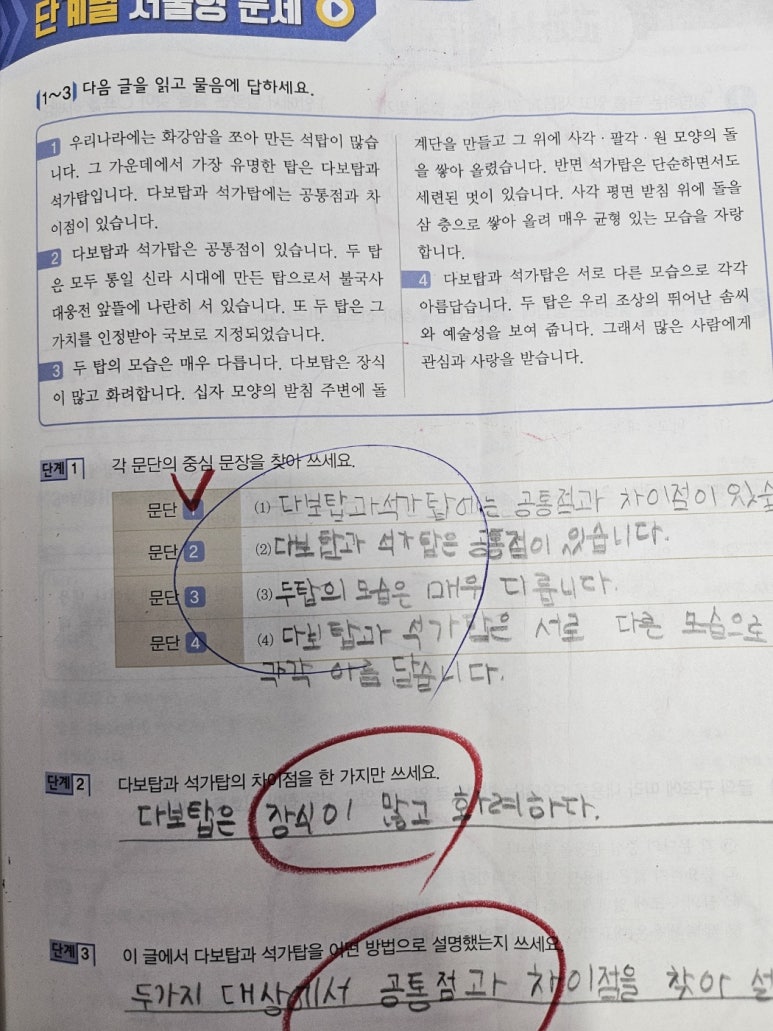 단계별 서술형 문제
[1~3] 다음 글을 읽고 물음에 답하세요.
1 우리나라에는 화강암을 쪼아 만든 석탑이 많습
니다. 그 가운데에서 가장 유명한 탑은 다보탑과
석가탑입니다. 다보탑과 석가탑에는 공통점과 차
이점이 있습니다.
2 다보탑과 석가탑은 공통점이 있습니다. 두 탑
은 모두 통일 신라 시대에 만든 탑으로서 불국사
대웅전 앞뜰에 나란히 서 있습니다. 또 두 탑은 그
가치를 인정받아 국보로 지정되었습니다.
3 두 탑의 모습은 매우 다릅니다. 다보탑은 장식
이 많고 화려합니다. 십자 모양의 받침 주변에 돌
계단을 만들고 그 위에 사각·팔각·원 모양의 돌
을 쌓아 올렸습니다. 반면 석가탑은 단순하면서도
세련된 멋이 있습니다. 사각 평면 받침 위에 돌을
삼 층으로 쌓아 올려 매우 균형 있는 모습을 자랑
합니다.
4 다보탑과 석가탑은 서로 다른 모습으로 각각
아름답습니다. 두 탑은 우리 조상의 뛰어난 솜씨
와 예술성을 보여 줍니다. 그래서 많은 사람에게
관심과 사랑을 받습니다.
단계 1 각 문단의 중심 문장을 찾아 쓰세요.
문단 1 (1) 다보탑과 석가탑에는 공통점과 차이점이 있습
문단 2 (2) 다보탑과 석가탑은 공통점이 있습니다.
문단 3 (3) 두탑의 모습은 매우 다릅니다.
문단 4 (4) 다보탑과 석가탑은 서로 다른 모습으로
각각 아름답습니다.
단계 2 다보탑과 석가탑의 차이점을 한 가지만 쓰세요.
다보탑은 장식이 많고 화려하다.
단계 3 이 글에서 다보탑과 석가탑을 어떤 방법으로 설명했는지 쓰세요.
두가지 대상에서 공통점과 차이점을 찾아 설